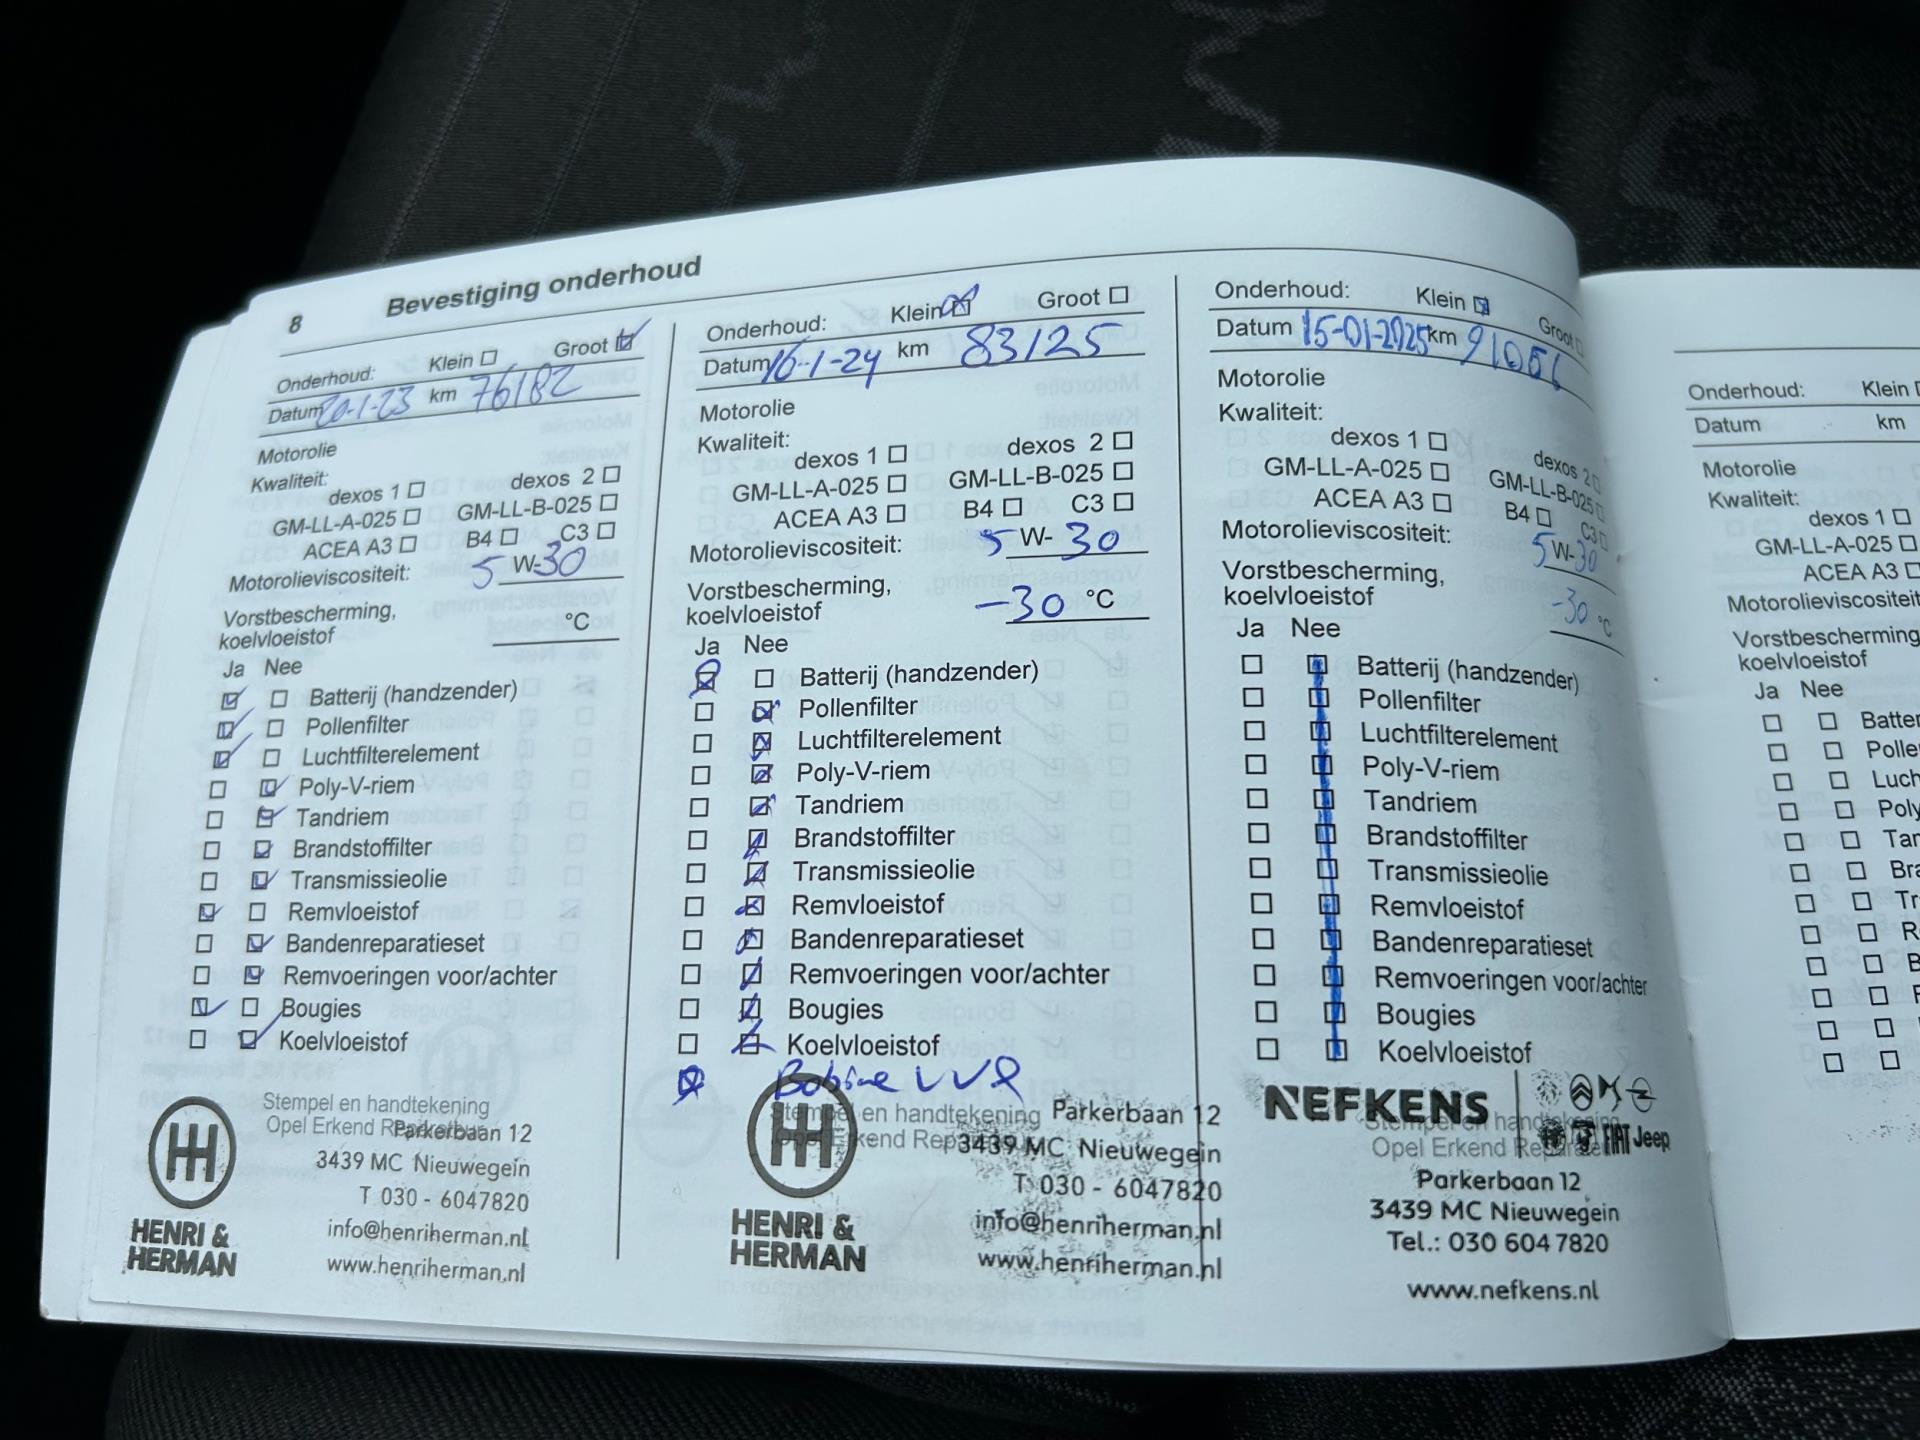 8 Bevestiging onderhoud
Onderhoud: Klein Groot
Datum 20-1-23 km 76182
Motorolie
Kwaliteit:
dexos 1 dexos 2
GM-LL-A-025 GM-LL-B-025
ACEA A3 B4 C3
Motorolieviscositeit: 5 W-30
Vorstbescherming,
koelvloeistof °C
Ja Nee
Batterij (handzender)
Pollenfilter
Luchtfilterelement
Poly-V-riem
Tandriem
Brandstoffilter
Transmissieolie
Remvloeistof
Bandenreparatieset
Remvoeringen voor/achter
Bougies
Koelvloeistof
Stempel en handtekening
Opel Erkend
Parkerbaan 12
3439 MC Nieuwegein
T 030 - 6047820
info@henriherman.nl
www.henriherman.nl
HENRI &
HERMAN
Onderhoud: Klein Groot
Datum 16-1-24 km 83125
Motorolie
Kwaliteit:
dexos 1 dexos 2
GM-LL-A-025 GM-LL-B-025
ACEA A3 B4 C3
Motorolieviscositeit: 5 W-30
Vorstbescherming,
koelvloeistof -30 °C
Ja Nee
Batterij (handzender)
Pollenfilter
Luchtfilterelement
Poly-V-riem
Tandriem
Brandstoffilter
Transmissieolie
Remvloeistof
Bandenreparatieset
Remvoeringen voor/achter
Bougies
Koelvloeistof
Bobine
Stempel en handtekening
Opel Erkend
Parkerbaan 12
3439 MC Nieuwegein
T 030 - 6047820
info@henriherman.nl
www.henriherman.nl
HENRI &
HERMAN
Onderhoud: Klein Groot
Datum 15-01-2025 km
Motorolie
Kwaliteit:
dexos 1 dexos 2
GM-LL-A-025 GM-LL-B-025
ACEA A3 B4 C3
Motorolieviscositeit: 5 W-30
Vorstbescherming,
koelvloeistof -30 °C
Ja Nee
Batterij (handzender)
Pollenfilter
Luchtfilterelement
Poly-V-riem
Tandriem
Brandstoffilter
Transmissieolie
Remvloeistof
Bandenreparatieset
Remvoeringen voor/achter
Bougies
Koelvloeistof
NEFKENS
Stempel en handtekening
Opel Erkend
FIAT Jeep
Parkerbaan 12
3439 MC Nieuwegein
Tel.: 030 604 7820
www.nefkens.nl
Onderhoud: Klein
Datum km
Motorolie
Kwaliteit:
dexos 1
GM-LL-A-025
ACEA A3
Motorolieviscositeit
Vorstbescherming
koelvloeistof
Ja Nee
Batter
Polle
Luch
Poly
Tar
Bra
Tr
R
B